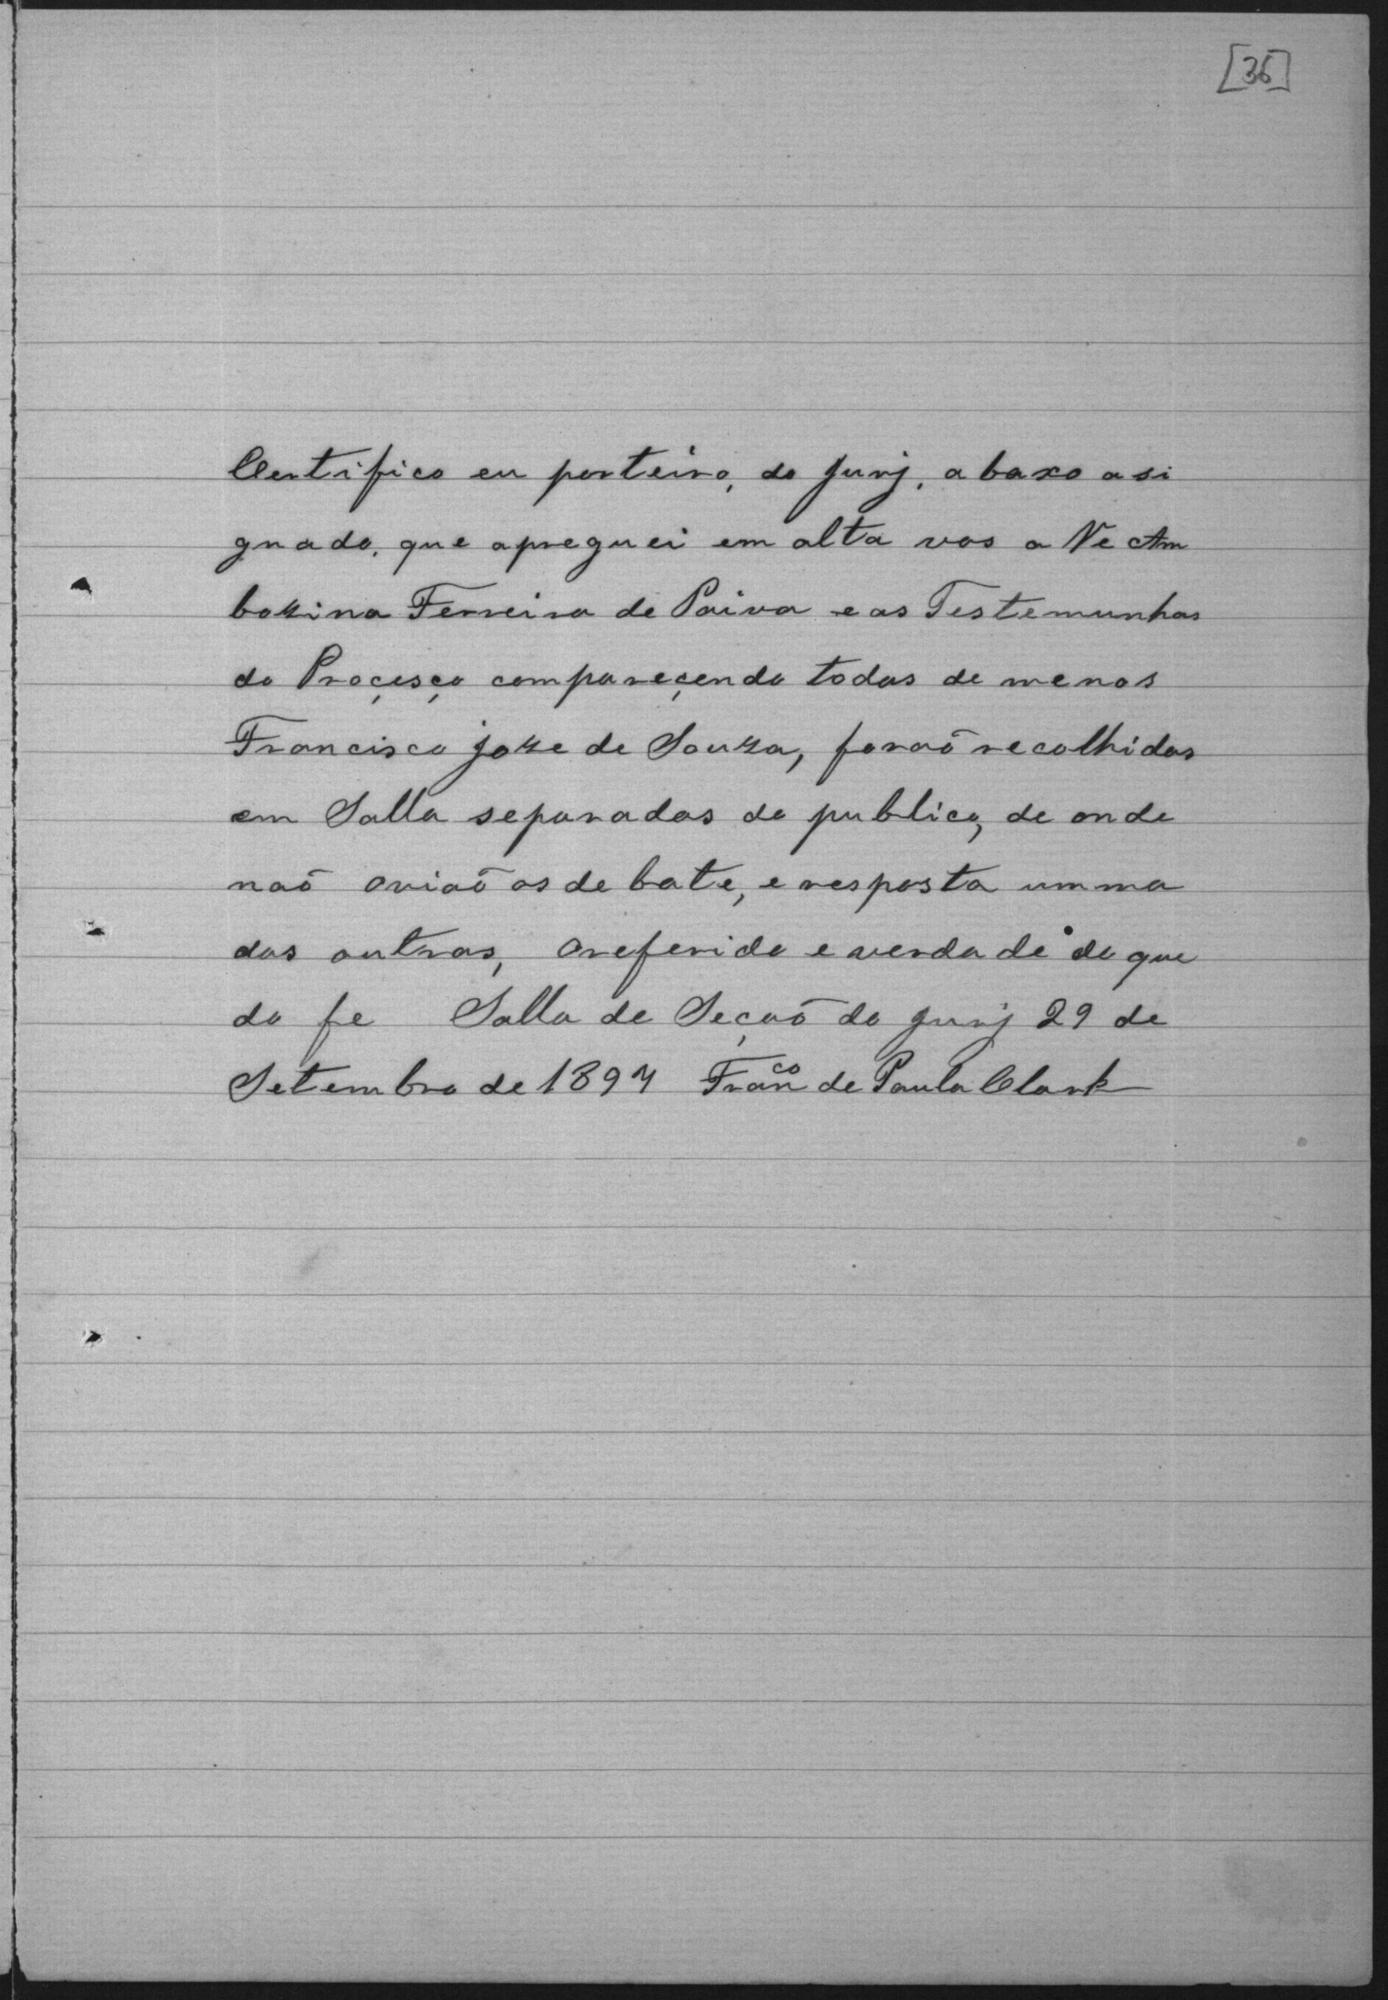 [36]
Certifico eu porteiro, do Jurj, abaxo asi
gnado, que apreguei em alta vos a Re Am
bozina Ferreira de Paiva e as Testemunhas
do Proçesço compareçendo todas de menos
Francisco joze de Souza, foraõ recolhidas
em Salla separadas do publico, de onde
naõ oviaõ os debate, e resposta umma
das outras, o referido e verdade do que
do fe Salla de Seçaõ do Jurj 29 de
Setembro de 1894 Fran<sup>co</sup> de Paula Clark